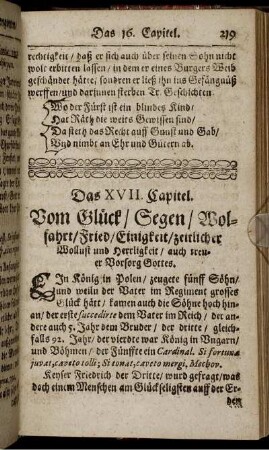 Das 16. Capitel. 219
rechtigkeit / daß er sich auch über seinen Sohn nicht
wolt erbitten lassen / in dem er eines Burgers Weib
geschändet hätte / sondren er ließ ihn ins Gefängnüß
werffen / und darinnen sterben Tr. Geschichten
Wo der Fürst ist ein blindes Kind /
Hat Räth die weits Gewissen sind /
Da steht das Recht auff Gunst und Gab /
Und nimbt an Ehr und Gütern ab.
Das XVII. Capitel.
Vom Glück / Segen / Wol-
fahrt / Fried / Einigkeit / zeitlicher
Wollust und Herrligkeit / auch treu-
er Vorsorg Gottes.
EIn König in Polen / zeugete fünff Söhn /
und weiln der Vater im Regiment grosses
Glück hätt / kamen auch die Söhne hoch hin-
an / der erste succedirte dem Vater im Reich / der an-
dere auch 5. Jahr dem Bruder / der dritte / gleich-
falls 92. Jahr / der vierdte war König in Ungarn /
und Böhmen / der Fünffte ein Cardinal. Si fortuna
juvat, caveto tolli; Si tonat, caveto mergi,
Keyser Friedrich der Dritte / wurd gefragt / was
doch einem Menschen am Glückseligsten auff der Er-
den